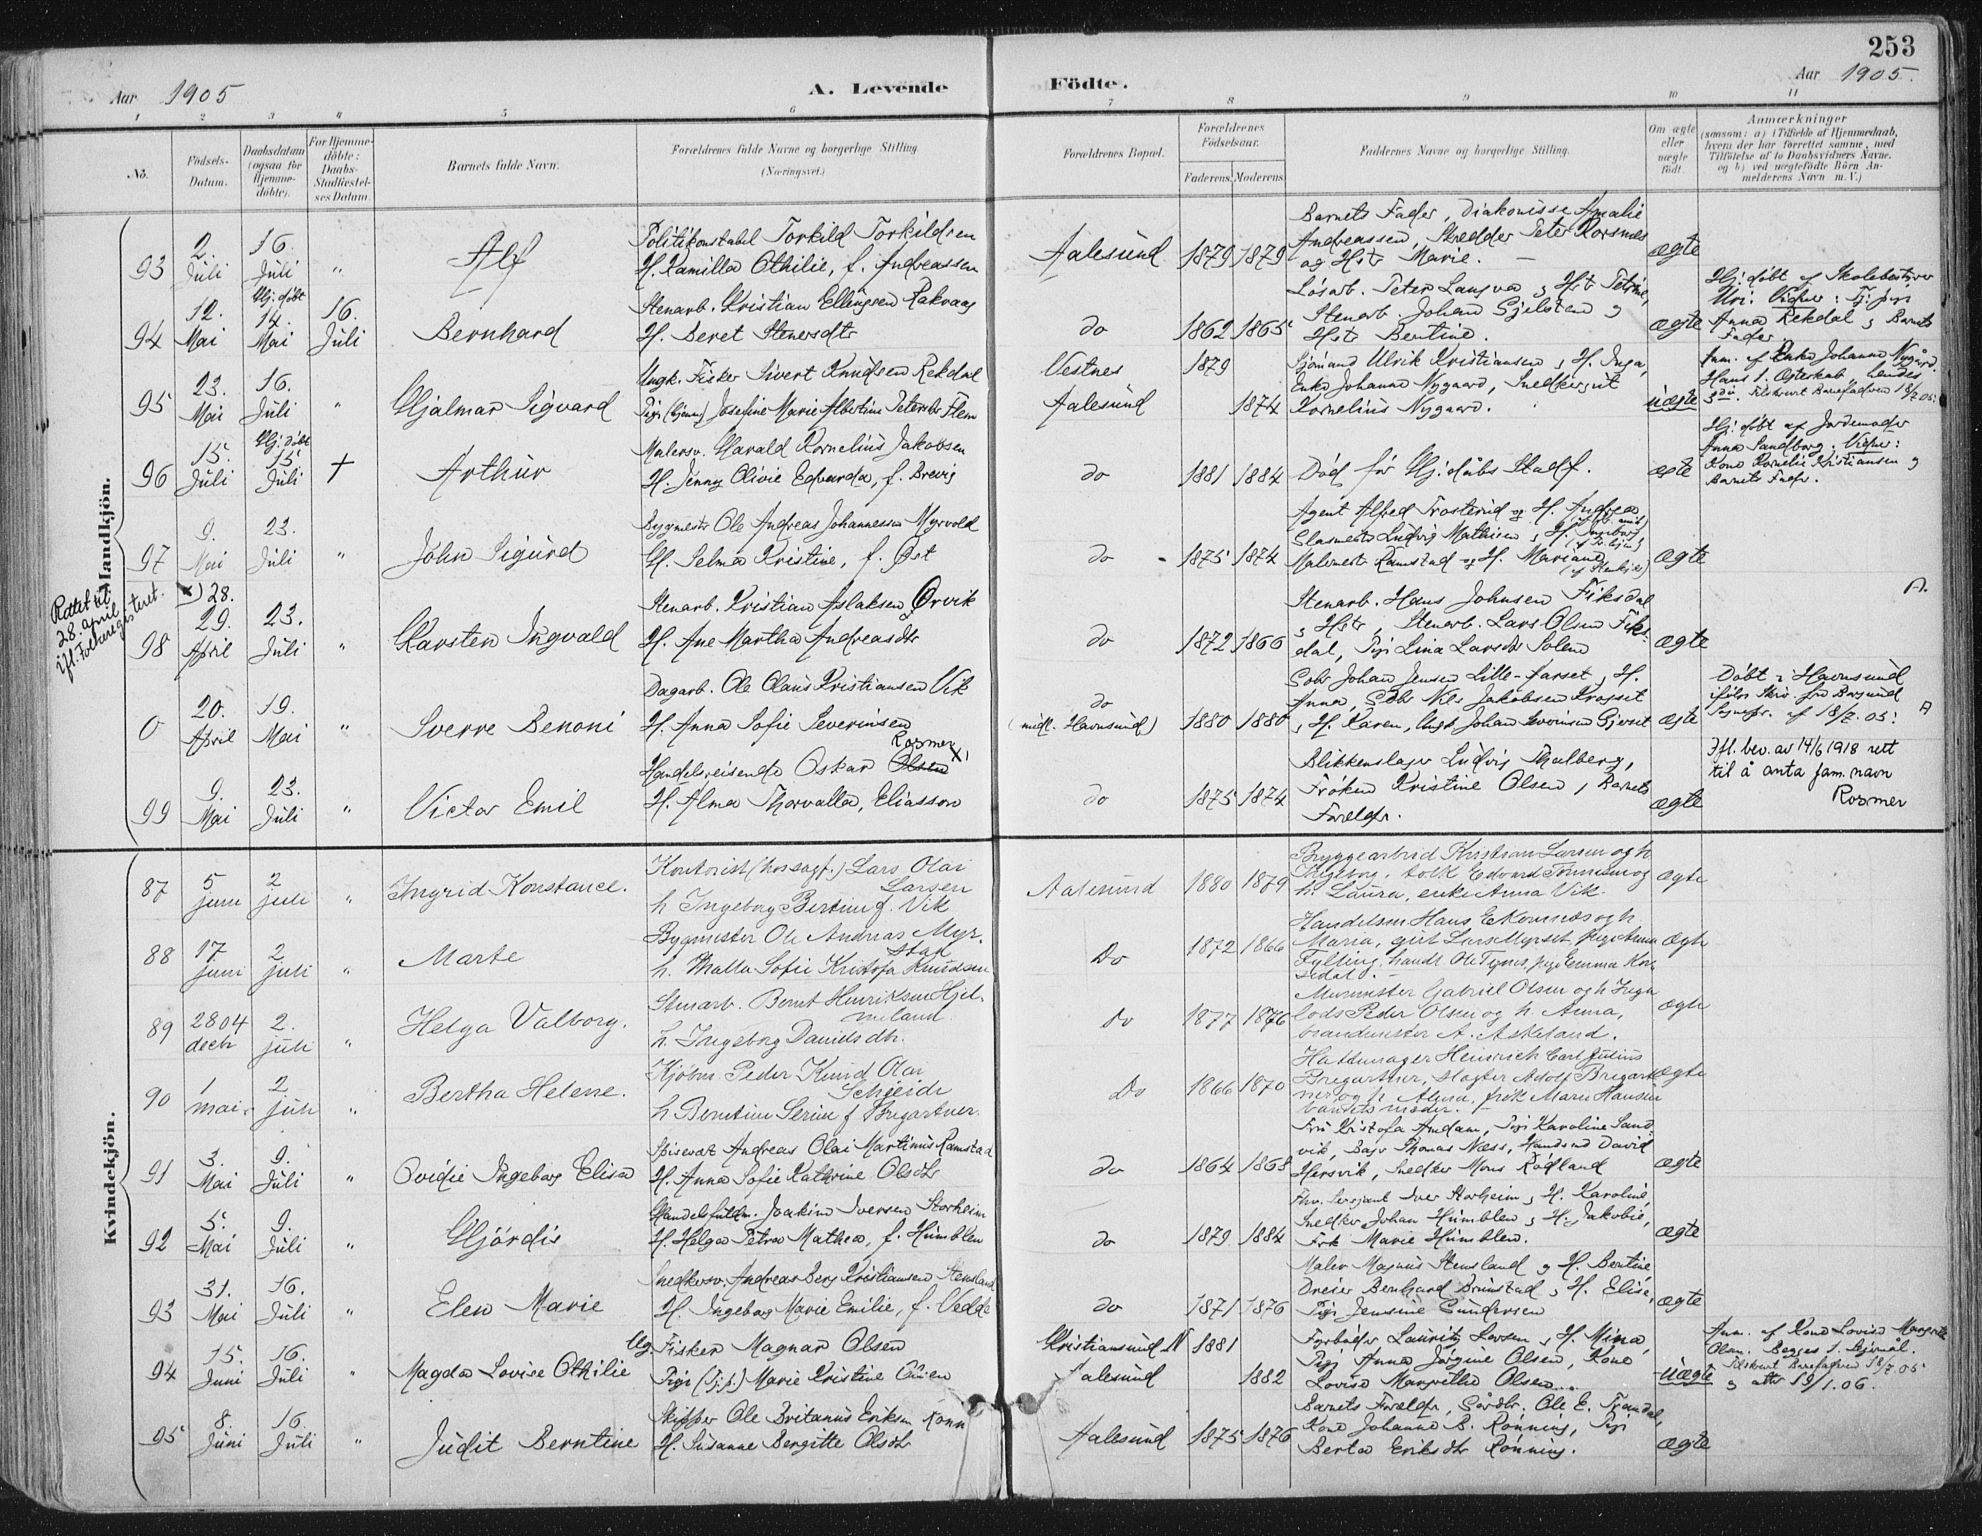 253
Aar 1905
A. Levende
Födte.
Aar 1905.
1 2 3 4 5 6 7 8 9 10 11
No.
Födsels-
Datum.
Daabsdatum
(ogsaa for
Hjemme-
döbte).
For Hjemme-
döbte:
Daabs-
Stadfæstel-
ses Datum.
Barnets fulde Navn.
Forældrenes fulde Navne og borgerlige Stilling
(Næringsvei.)
Forældrenes Bopæl.
Forældrenes
Födselsaar.
Faderens.
Moderens.
Faddernes Navne og borgerlige Stilling.
Om ægte
eller
uægte
födt.
Anmærkninger
(saasom: a) i Tilfælde af Hjemmedaab,
hvem der har forrettet samme, med
Tilföielse af to Daabsvidners Navne.
og b) ved uægtefödte Börn An-
melderens Navn m. V.)
Mandkjön.
93 2. Juli 16. Juli "
Alf
Politikonstabel Torkild Torkildsen
H. Kamilla Othilie, f. Andreassen
Aalesund 1879 1879
Barnets Fader, Diakonisse Amalie
Andreassen, Skredder Peter Korsnes
og Hstr Marie. –
ægte
94 12. Mai Hj. døbt 14. Mai 16. Juli
Bernhard
Stenarb. Kristian Ellingsen Rakvaag
H. Beret Stenersdtr
do 1862 1865
Løsarb. Peter Langva & Hst Petrine,
Stenarb. Johan Gjelsten &
Hstr Bentine.
ægte
Hj. døbt af Skolebestyrer
Uri. Vidner:
Anna Rekdal & Barnets
Fader
95 23. Mai 16. Juli "
Hjalmar Sigvard
Ungk. Fisker Sivert Knudsen Rekdal
Josefine Marie Albertine Petersdtr Flem
Vestnes 1879
Aalesund 1874
Sjømand Ulrik Kristiansen & H. Inga,
Enke Johanne Nygaard, Snedkersvt
Kornelius Nygaard.
uægte
Anm. af Enke Johanne Nygård.
Hans 1. Ægteskab, hendes
3die. Tilskrevet Barnefaderen 18/7 05.
96 15. Juli Hj. døbt 15. Juli +
Arthur
Malersv. Harald Kornelius Jakobsen
H. Jenny Olivie Edvarda, f. Brevig
do 1881 1884
Død før Hj. daabs Stadf.
ægte
Hj. døbt af Jordemoder
Anna Sandborg. Vidner:
Kone Kornelie Kristiansen &
Barnets Fader.
97 9. Mai 23. Juli "
John Sigurd
Bygmestr Ole Andreas Johannessen Myrvold
H. Selma Kristine, f. Øst
do 1875 1874
Agent Alfred Trosterud og H. Andrea
Glasmestr Ludvig Mathisen & H. Ingeborg
Malermestr Ramstad og H. Mariane
ægte
Rettet til
28. april
ifl. Folkeregisteret.
x) 28.
98 29. April 23. Juli "
Karsten Ingvald
Stenarb. Kristian Aslaksen Ørvik
H. Ane Martha Andreasdtr
do 1872 1866
Stenarb. Hans Johnsen Fiksdal
& Hstr, Stenarb. Lars Olsen Fiks-
dal, Pige Lina Larsdtr Solem
ægte
A.
0 20. April 19. Mai "
Sverre Benoni
Dagarb. Ole Olaus Kristiansen Vik
H. Anna Sofie Severinsen
do
(midl. Havnsund) 1880 1880
Gbr Johan Jensen Lille-farset, H.
Anna, Gbr Nils Jakobsen Krogset
& H. Karen, Ungk Johan Severinsen Gjerset
ægte
Døbt i Havnsund
ifølge Skriv. fra
Sognepr. af 18/7. 05. A
99 9. Mai 23. Juli "
Victor Emil
Handelsreisende Oskar Olsen Rosmer x)
H. Alma Thorvalla, Eliasson
do 1875 1874
Blikkenslager Ludvig Thalberg,
Frøken Kristine Olsen, Barnets
Forældr.
ægte
Ifl. bev. av 14/6 1918 rett
til å anta fam.navn
Rosmer
Kvindekjön.
87 5 juni 2 juli "
Ingrid Konstance.
Kontorist (hos sagf.) Lars Olai
Larsen
h Ingeborg Bertine f. Vik
Aalesund 1880 1879
Bryggearbeid Kristian Larsen og h
Ingeborg, tolk Edvard Tønnesen og
h. Laura, enke Anna Vik.
ægte
88 17 juni 2 juli "
Marte
Bygmester Ole Andreas Myr-
stad
h. Malla Sofie Kristofa Knudsen
Do 1872 1866
Handelsm Hans Ekornnæs og h
Maria, gift Lars Myrset, pige Anna
Fylling, handl. Ole Tynes, pige Emma
ægte
89 28 04 decb 2. juli "
Helga Valborg.
Stenarb. Bernt Henriksen Hjel-
meland.
h. Ingeborg Danielsdtr.
do 1877 1876
Murmester Gabriel Olsen og h Inga
lods Peder Olsen og h. Anna,
brandmester A. Askeland.
ægte
90 1 mai. 2 juli "
Bertha Helene.
Kjøbm. Peder Knud Olai
Scheide
h Berntine Serine f Bregartner.
Do 1866 1870
Hattemager Heinrich Carl Julius
Bregartner, slagter Adolf Bregart-
ner og h Alma, frøk Marie Hansen
barnets moder. –
ægte
91 3. Mai 9. Juli "
Ovidie Ingeborg Elisa
Spisevært Andreas Olai Martinus Ramstad
H. Anna Sofie Kathrine Olsdtr
do 1864 1868
Fru Kristofa Amdam, Pige Karoline Sand-
vik, Thomas Næss, Handlsmd David
Hersvik, Snedker Mons Rödland
ægte
92 5. Mai 9. Juli "
Hjördis
Handelsfuldm. Joakim Iversen Storheim
H. Helga Petra Mathea, f. Humblen
do 1879 1884
Fhv. Sersjant Iver Storheim & H. Karoline,
Snedker Johan Humblen & H. Jakobie,
Frk Marie Humblen.
ægte
93 31. Mai 16. Juli "
Elen Marie
Snedkersv. Andreas Berg Kristiansen Stensland
H. Ingeborg Marie Emilie, f. Vedde
do 1871 1876
Maler Magnus Stensland og H. Bentine
Dreier Bernhard Brunstad & H. Elise,
Pige Jensine Gundersen
ægte
94 15. Juni 16. Juli "
Magda Lovise Othilie
Ug. Fisker Magnar Olsen
Pige Marie Kristine Olsen
Kristiansund N 1881
Aalesund 1882
Fyrbøder Lauritz Larsen & H. Mina,
Pige Anna Jörgine Olsen, Kone
Lovise Margrethe Olsen.
uægte
Anm. af Kone Lovise Margrethe
Olsen. Begges 1. Leiermål.
Tilskrevet Barnefaderen 18/7 05
& atter 19/1. 06.
95 8. Juni 16. Juli "
Judit Berntine
Skipper Ole Britanus Eriksen Rønn
H. Susanne Bergitte Olsdtr
Aalesund 1875 1876
Barnets Forældr, Gårdbr. Ole E. Tjandal,
Kone Johanne B. Rønning, Pige
Berta Eriksdtr Rønning.
ægte